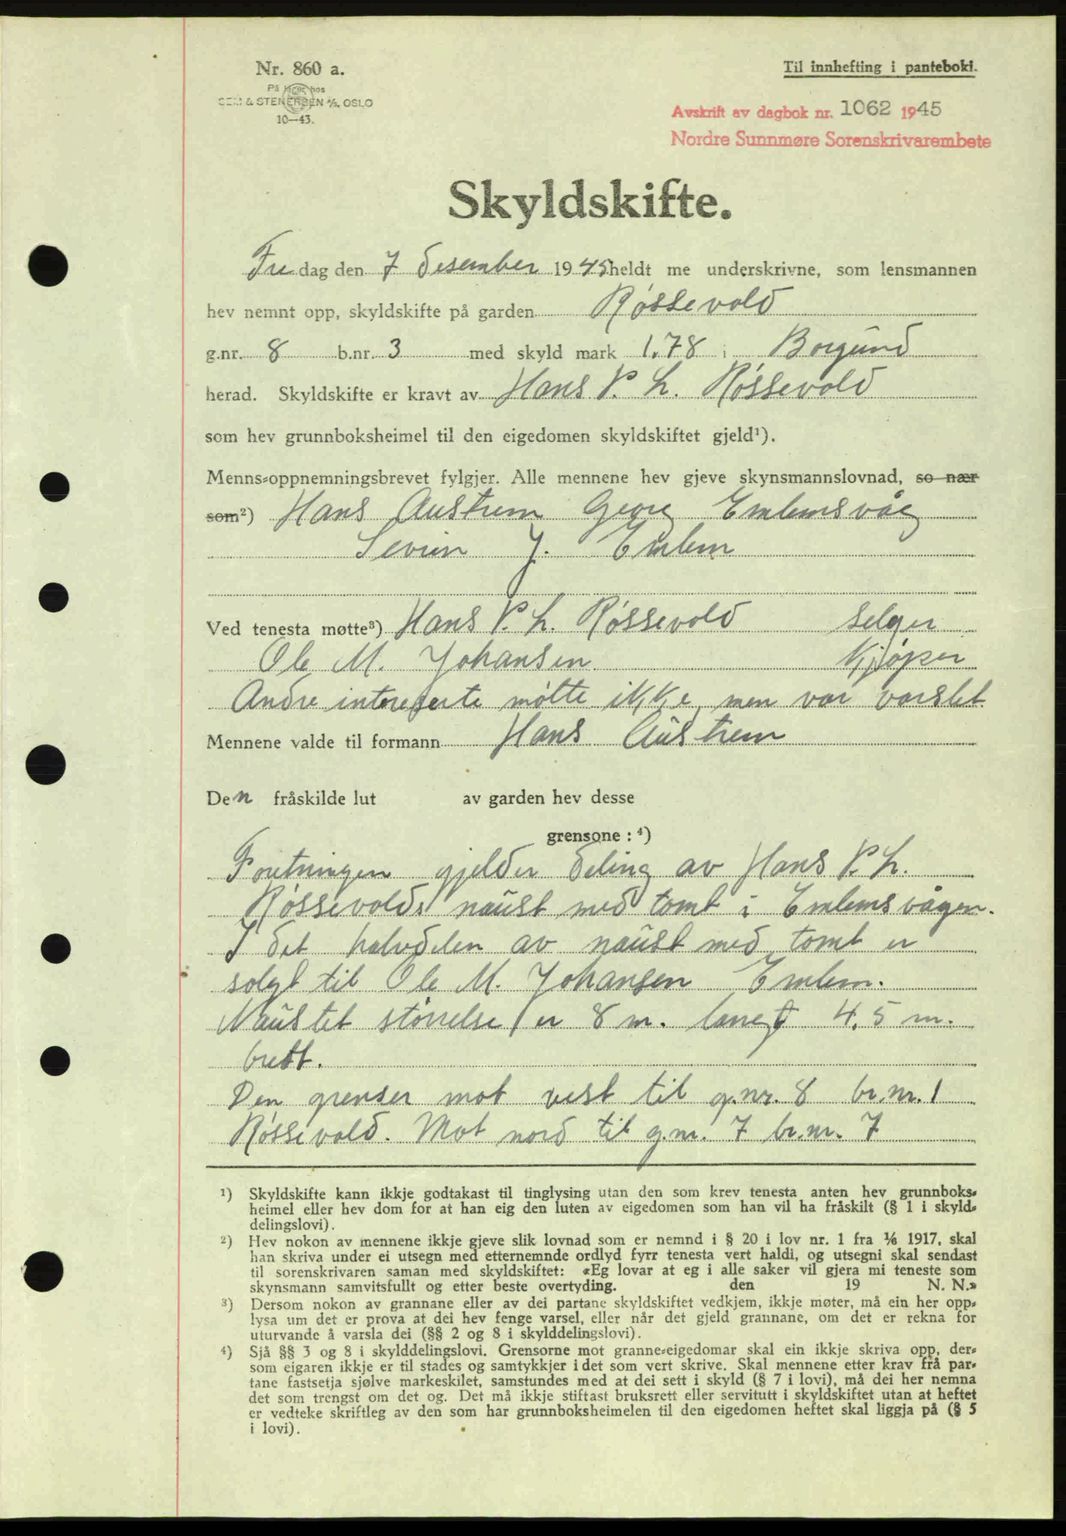 Nr. 860 a.
Til innhefting i pantebok.
På lager hos
SEM & STENERSEN A/S, OSLO
10—43.
Avskrift av dagbok nr. 1062 1945
Nordre Sunnmøre Sorenskrivarembete
Skyldskifte.
Fredag den 7 desember 1945 heldt me underskrivne, som lensmannen
hev nemnt opp, skyldskifte på garden Røssevold
g.nr. 8 b.nr. 3 med skyld mark 1.78 i Borgund
herad. Skyldskifte er kravt av Hans P. L. Røssevold
som hev grunnboksheimel til den eigedomen skyldskiftet gjeld¹).
Menns-oppnemningsbrevet fylgjer. Alle mennene hev gjeve skynsmannslovnad, so nær
som²) Hans Austrem Georg Emlemsvåg
Severin J. Emlem
Ved tenesta møtte³) Hans P. L. Røssevold selger
Ole M. Johansen kjøper
Andre interesserte møtte ikke, men var varslet
Mennene valde til formann Hans Austrem
Den fråskilde lut av garden hev desse
grensone: ⁴)
Foretningen gjelder deling av Hans P. L.
Røssevolds naust med tomt i Emlemsvågen.
I det halvdelen av naust med tomt er
solgt til Ole M. Johansen Emlem.
Naustet størrelse er 8 m. langt 4,5 m.
bredt.
Den grenser mot vest til g.nr. 8 br.nr. 1
Røssevold. Mot nord til g.nr. 7 br.nr. 7
¹) Skyldskifte kann ikkje godtakast til tinglysing utan den som krev tenesta anten hev grunnboks-
heimel eller hev dom for at han eig den luten av eigedomen som han vil ha fråskilt (§ 1 i skyld-
delingslovi).
²) Hev nokon av mennene ikkje gjeve slik lovnad som er nemnd i § 20 i lov nr. 1 fra 1/6 1917, skal
han skriva under ei utsegn med etternemnde ordlyd fyrr tenesta vert haldi, og utsegni skal sendast
til sorenskrivaren saman med skyldskiftet: «Eg lovar at eg i alle saker vil gjera mi teneste som
skynsmann samvitsfullt og etter beste overtyding. den 19 N. N.»
³) Dersom nokon av grannane eller av dei partane skyldskiftet vedkjem, ikkje møter, må ein her opp-
lysa um det er prova at dei hev fenge varsel, eller når det gjeld grannane, om det er rekna for
uturvande å varsla dei (§§ 2 og 8 i skylddelingslovi).
⁴) Sjå §§ 3 og 8 i skylddelingslovi. Grensorne mot granne-eigedomar skal ein ikkje skriva opp, der-
som eigaren ikkje er til stades og samtykkjer i det som vert skrive. Skal mennene etter krav frå par-
tane fastsetja sjølve markeskilet, samstundes med at dei sett i skyld (§ 7 i lovi), må dei her nemna
det som trengst om det og. Det må ikkje stiftast bruksrett eller servitutt i skyldskiftet utan at heftet
er vedteke skriftleg av den som har grunnboksheimelen til den eigedomen heftet skal liggja på (§ 5
i lovi).